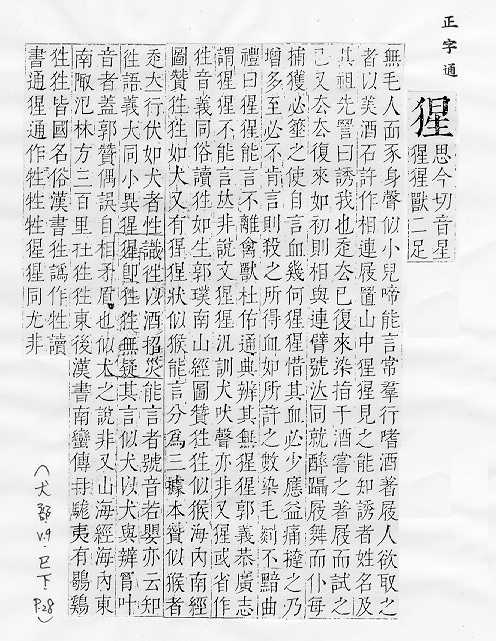 正字通
猩
思今切音星
猩猩獸二足
無毛人面豕身聲似小兒啼能言常羣行嗜酒着屐人欲取之
者以美酒石許作相連屐置山中猩猩見之能知誘者姓名及
其祖先詈曰誘我也乖去已復來染指于酒嘗之着屐而試之
已又去去復來如初則相與連臂號泣同就醉躡屐舞而仆每
捕獲必箠之使自言血幾何猩猩惜其血必少應益痛撻之乃
增多至必不肯言則殺之所得血如所許之數染毛罽不黯曲
禮曰猩猩能言不離禽獸杜佑通典辨其無猩猩郭義恭廣志
謂猩猩不能言𠀤非說文猩猩汎訓犬吠聲亦非又猩或省作
狌音義同俗讀狌如生郭璞南山經圖贊狌狌似猴海內南經
圖贊狌狌如犬又有猩猩狀似猴能言分爲三㨿本贊似猴者
乖犬行伏如犬者性識徃以酒招災能言者號音若嬰亦云知
徃語義大同小異猩猩卽狌狌無疑其言似犬以犬與辨胷叶
音者蓋郭贊偶誤自相矛盾也似犬之說非又山海經海內東
南陬氾林方三百里在狌狌東後漢書南蠻傳冄駹夷有鸚鷄
狌狌皆國名俗漢書狌譌作牲讀
書通猩通作狌牲牲猩猩同尤非
(犬部 V.9.巳下 P28)